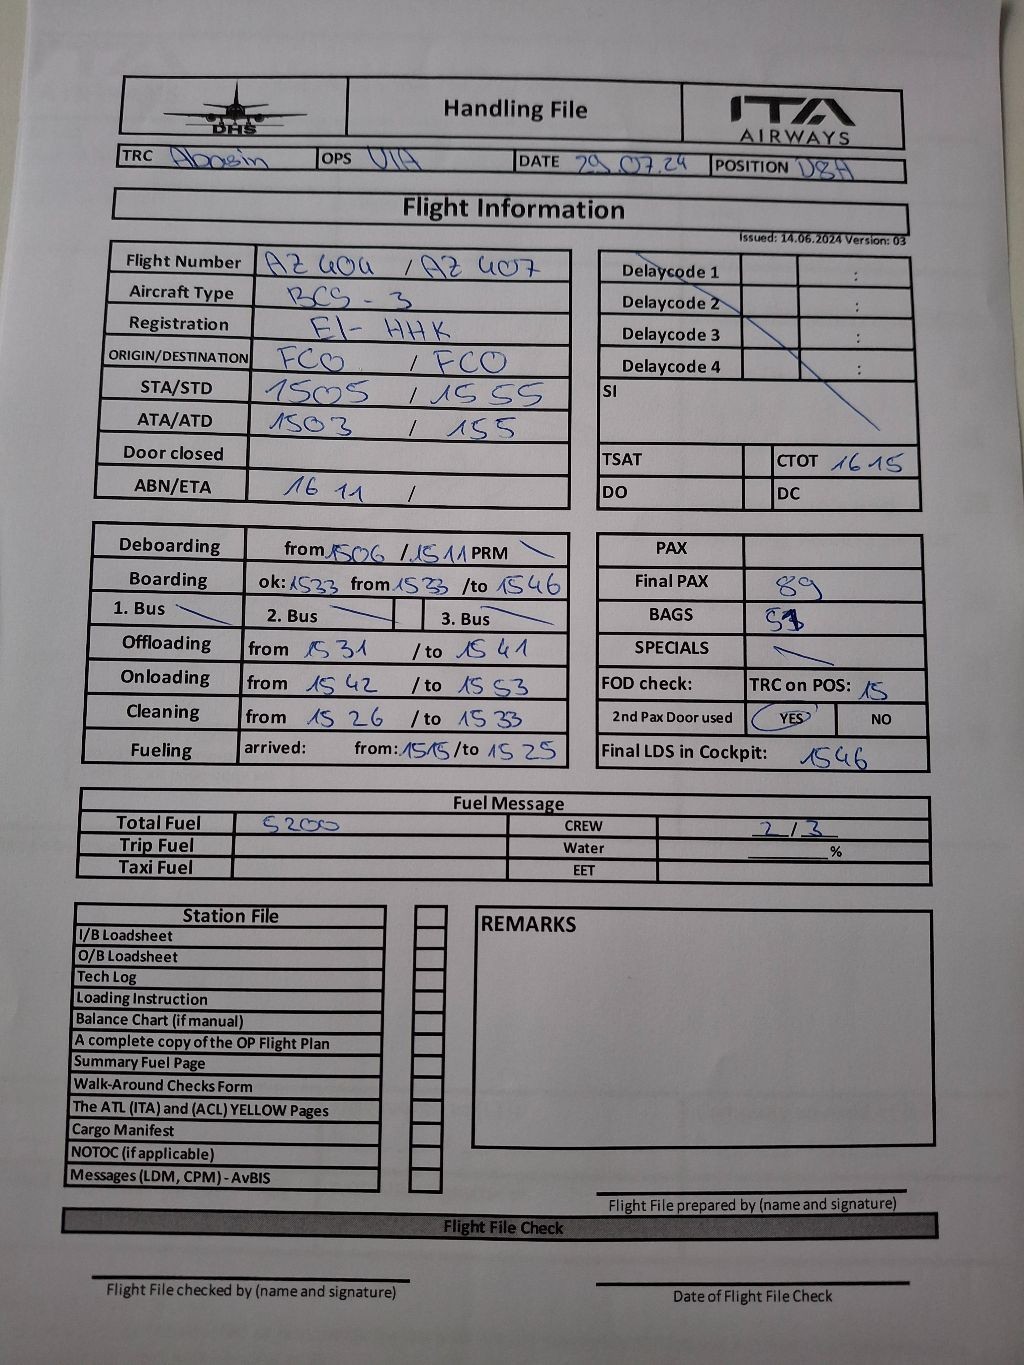 DHS
Handling File
ITA
AIRWAYS
TRC Abasin OPS VIA DATE 29.07.24 POSITION V8A
Flight Information
Issued: 14.06.2024 Version: 03
Flight Number AZ 404 / AZ 407
Aircraft Type BCS - 3
Registration EI- HHK
ORIGIN/DESTINATION FCO / FCO
STA/STD 1505 / 1555
ATA/ATD 1503 / 155
Door closed
ABN/ETA 16 11 /
Delaycode 1 :
Delaycode 2 :
Delaycode 3 :
Delaycode 4 :
SI
TSAT CTOT 1615
DO DC
Deboarding from 1506 / 1511 PRM
Boarding ok: 1533 from 1533 /to 1546
1. Bus 2. Bus 3. Bus
Offloading from 1531 / to 1541
Onloading from 1542 / to 1553
Cleaning from 1526 / to 1533
Fueling arrived: from: 1515 /to 1525
PAX
Final PAX 89
BAGS 51
SPECIALS
FOD check: TRC on POS: 15
2nd Pax Door used YES NO
Final LDS in Cockpit: 1546
Fuel Message
Total Fuel 5200 CREW 2 / 3
Trip Fuel Water %
Taxi Fuel EET
Station File
I/B Loadsheet
O/B Loadsheet
Tech Log
Loading Instruction
Balance Chart (if manual)
A complete copy of the OP Flight Plan
Summary Fuel Page
Walk-Around Checks Form
The ATL (ITA) and (ACL) YELLOW Pages
Cargo Manifest
NOTOC (if applicable)
Messages (LDM, CPM) - AvBIS
REMARKS
Flight File prepared by (name and signature)
Flight File Check
Flight File checked by (name and signature)
Date of Flight File Check